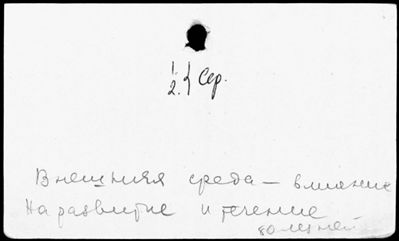 1.
2. } Сер.
Внешняя среда — влияние
на развитие и течение
болезней